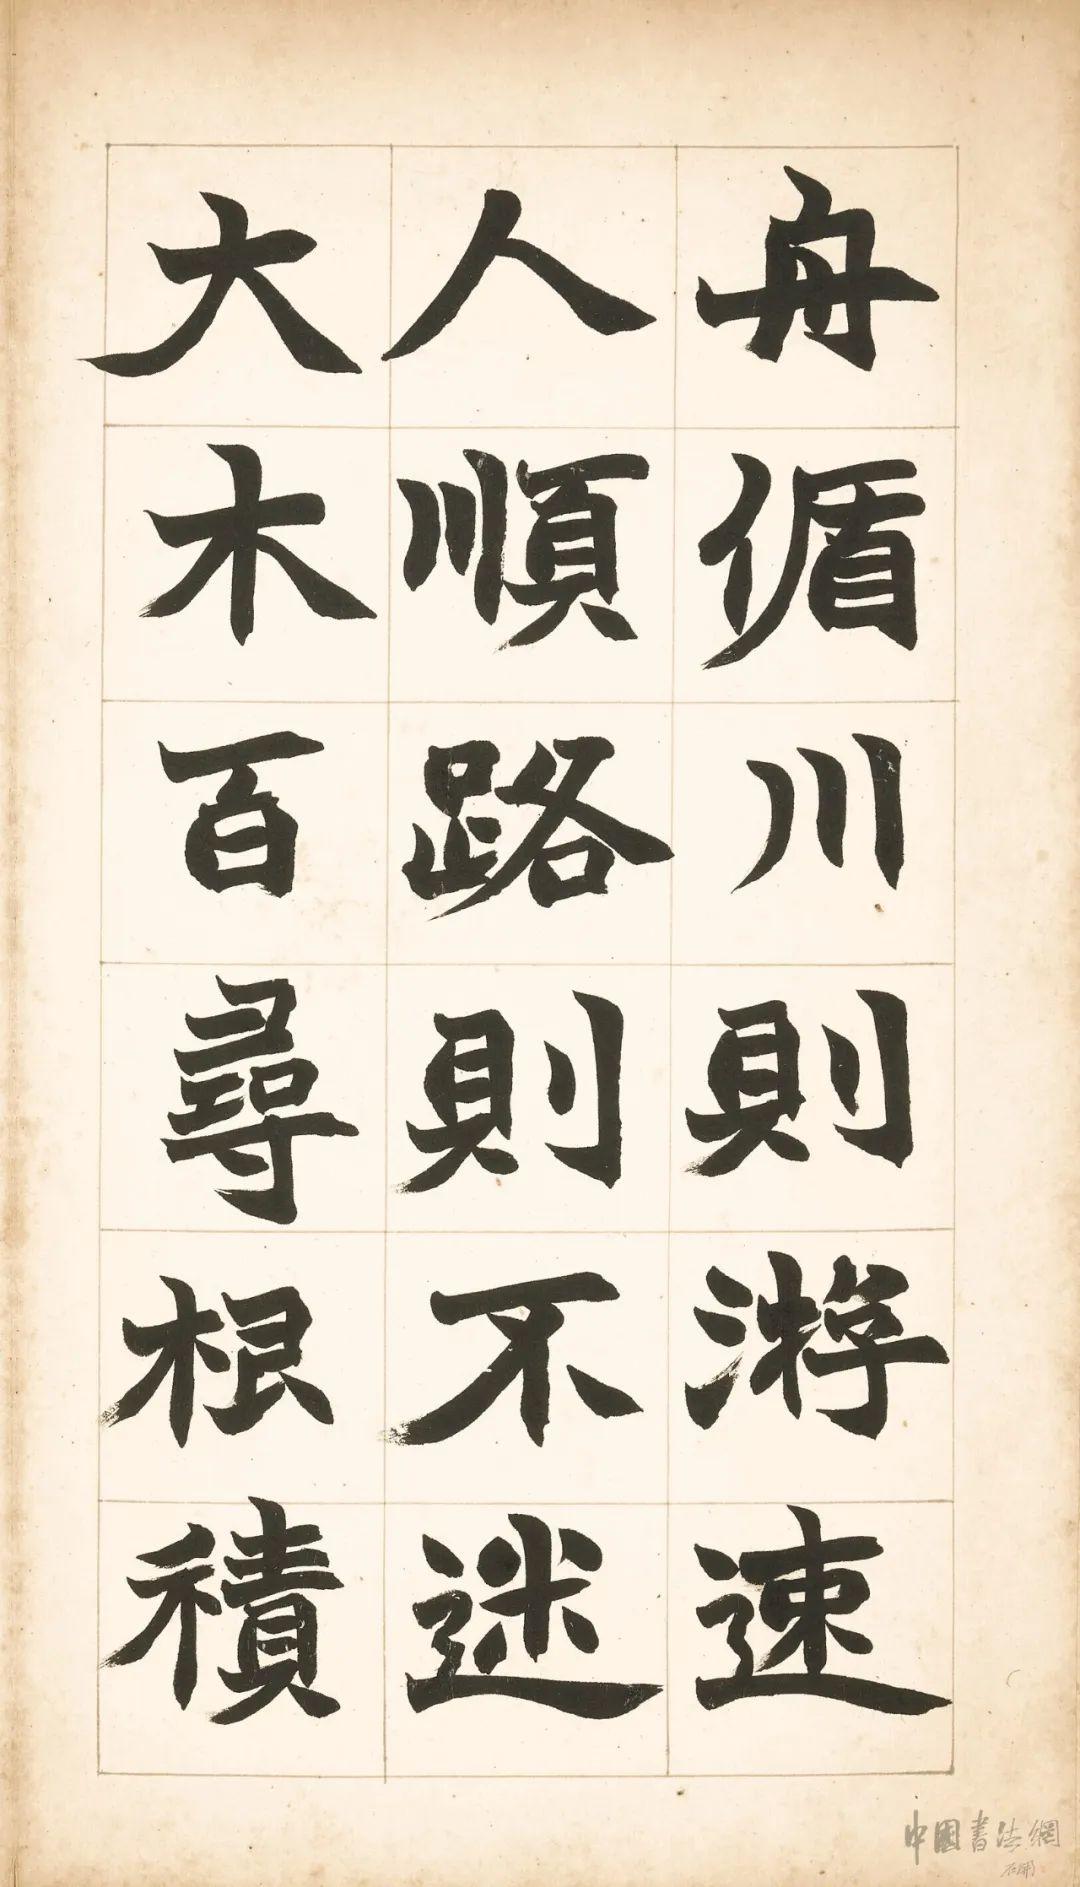 舟循川則游速
人順路則不迷
大木百尋根積
中國書法網